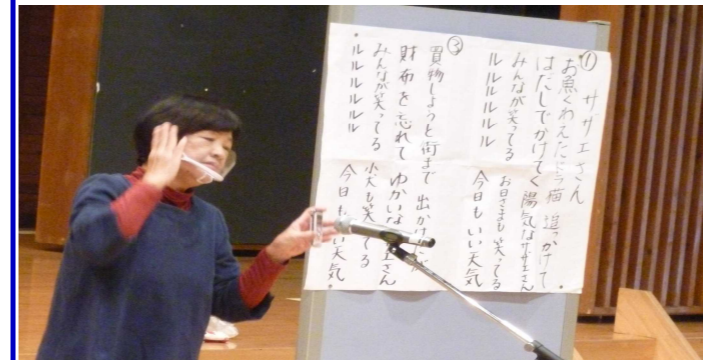 ① サザエさん
お魚くわえたどら猫 追っかけて
はだしでかけてく 陽気なサザエさん
みんなが笑ってる お日さまも笑ってる
ルルルルルル 今日もいい天気
③
買物しようと街まで 出かけたが
財布を忘れて ゆかいな エさん
みんなが笑ってる 小犬も笑ってる
ルルルルルル 今日もいい天気